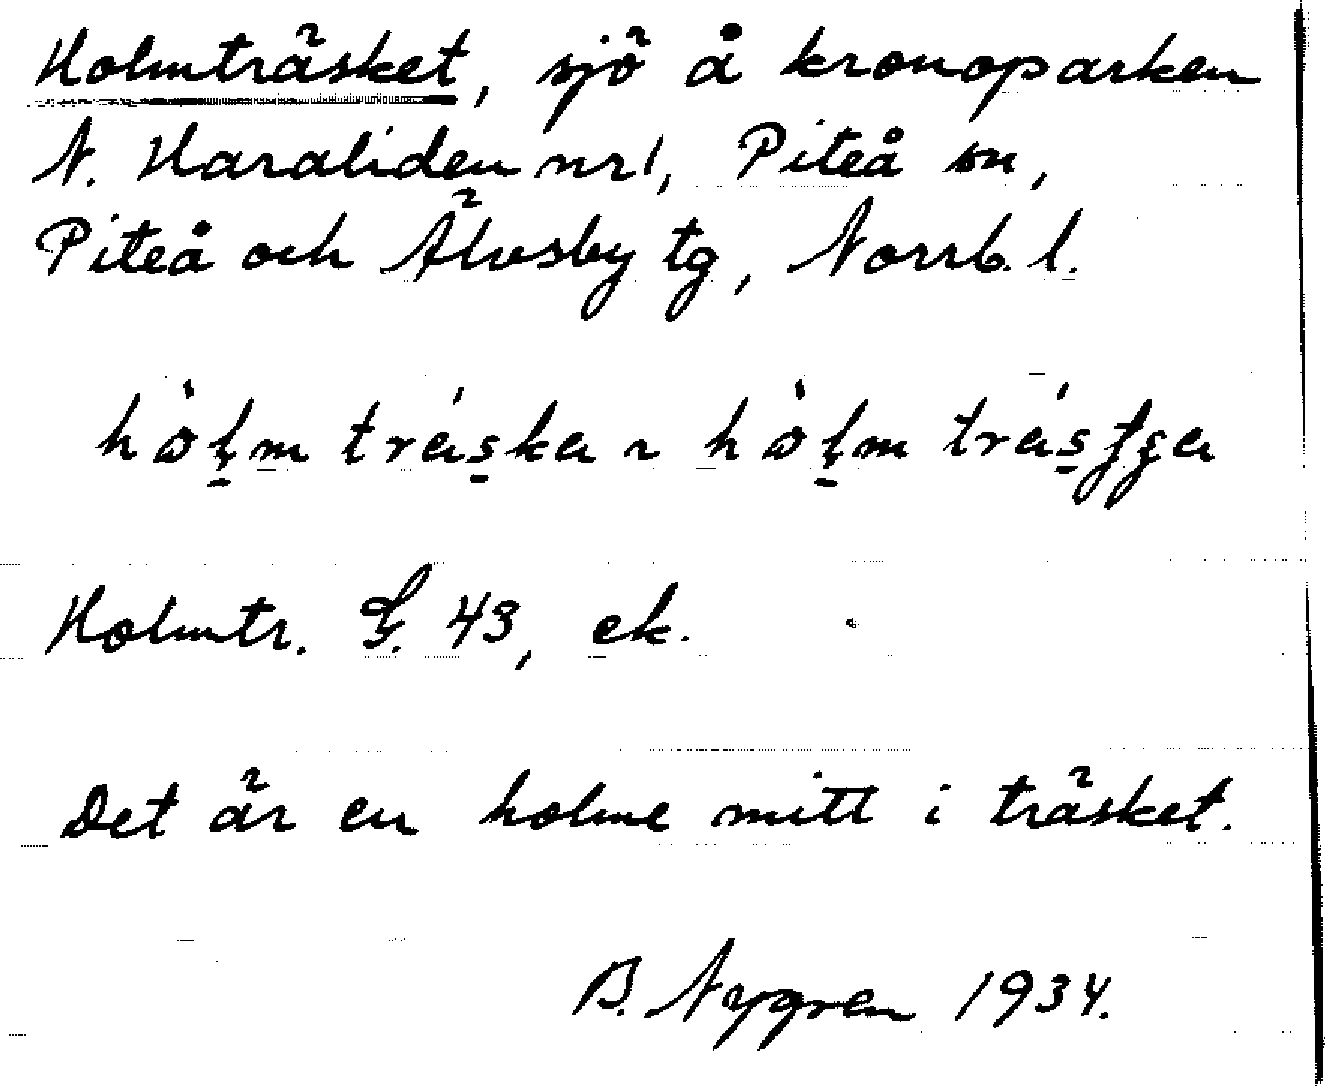 Holmträsket, sjö å kronoparken
N. Haraliden nr 1, Piteå sn,
Piteå och Älvsby tg, Norrb. l.
Holmtr. G. 43, ek.
Det är en holme mitt i träsket.
B. Nygren 1934.